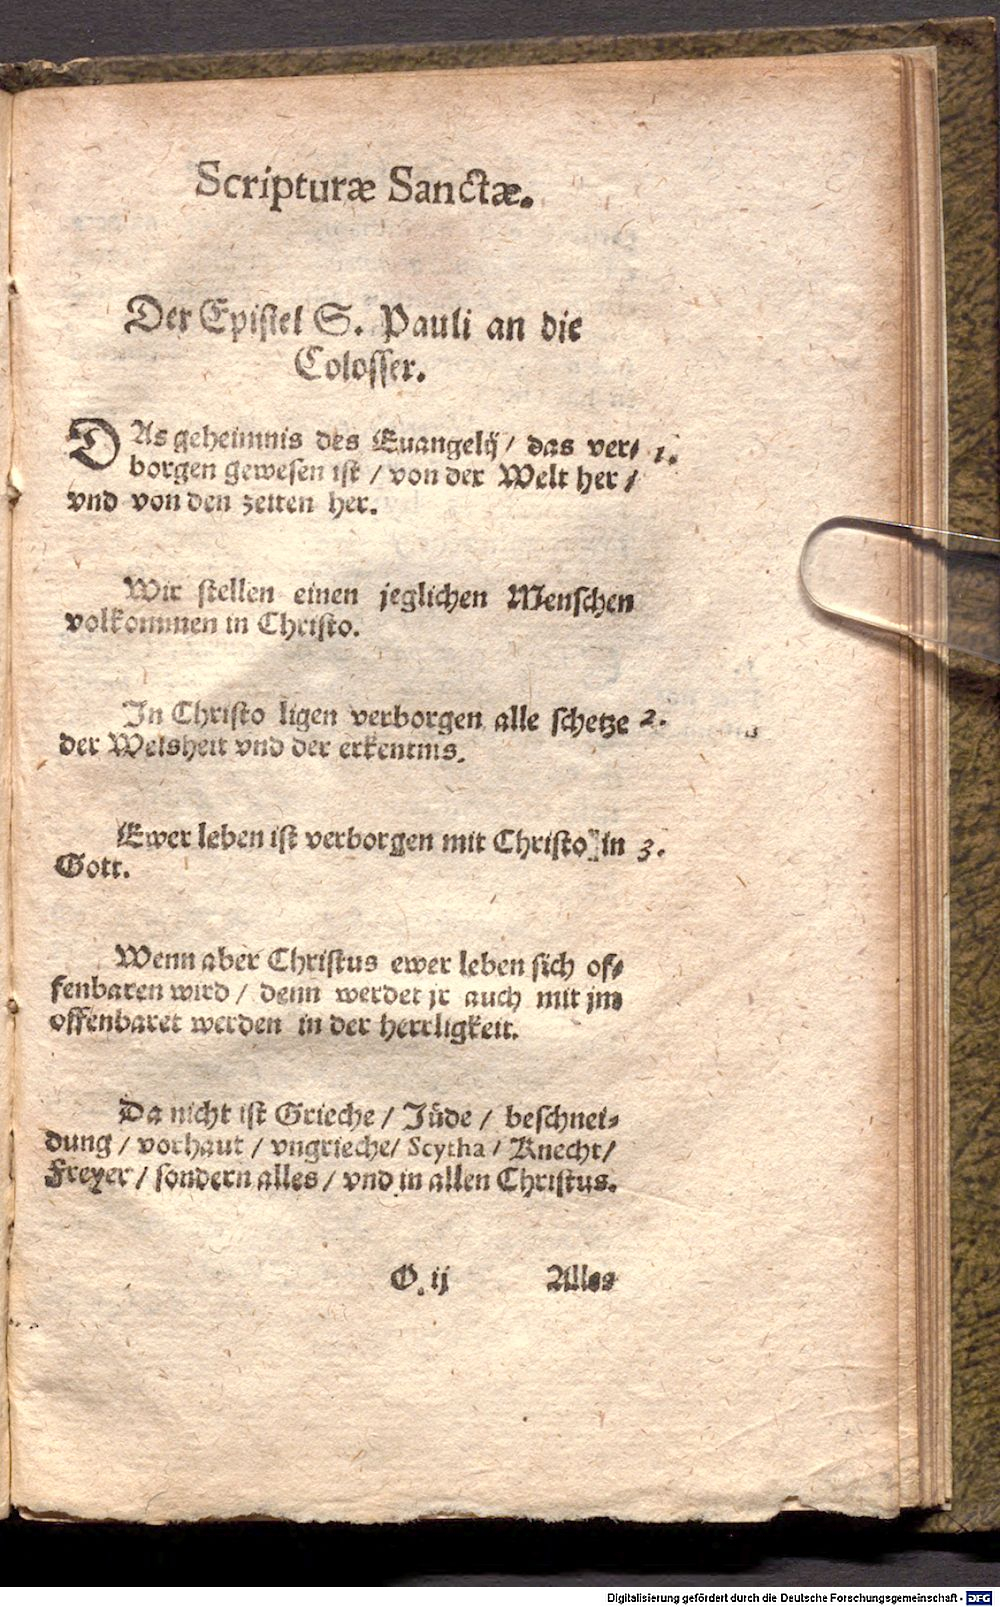 Scripturæ Sanctæ.
Der Epistel S. Pauli an die
Colosser.
DAs geheimnis des Euangelij / das ver- 1.
borgen gewesen ist / von der Welt her /
vnd von den zeiten her.
Wir stellen einen jeglichen Menschen
volkommen in Christo.
In Christo ligen verborgen alle schetze 2.
der Weisheit vnd der erkentnis.
Ewer leben ist verborgen mit Christo in 3.
Gott.
Wenn aber Christus ewer leben sich of-
fenbaren wird / denn werdet jr auch mit jm
offenbaret werden in der herrligkeit.
Da nicht ist Grieche / Jüde / beschnei-
dung / vorhaut / vngrieche / Scytha / Knecht /
Freyer / sondern alles / vnd in allen Christus.
O. ij Alles
Digitalisierung gefördert durch die Deutsche Forschungsgemeinschaft - DFG